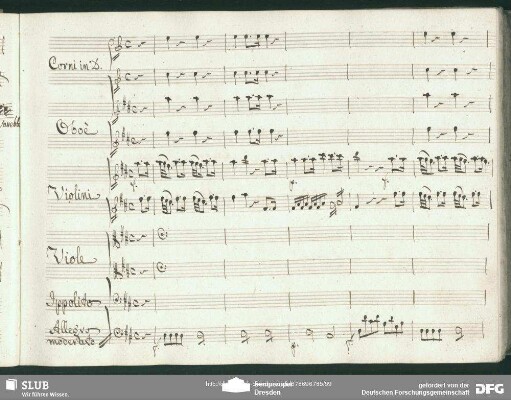 Corni in D.
Oboè
Violini
Viole
Ippolito
Allegro
moderato
SLUB
Wir führen Wissen.
Dresden
gefördert von der
Deutschen Forschungsgemeinschaft
DFG